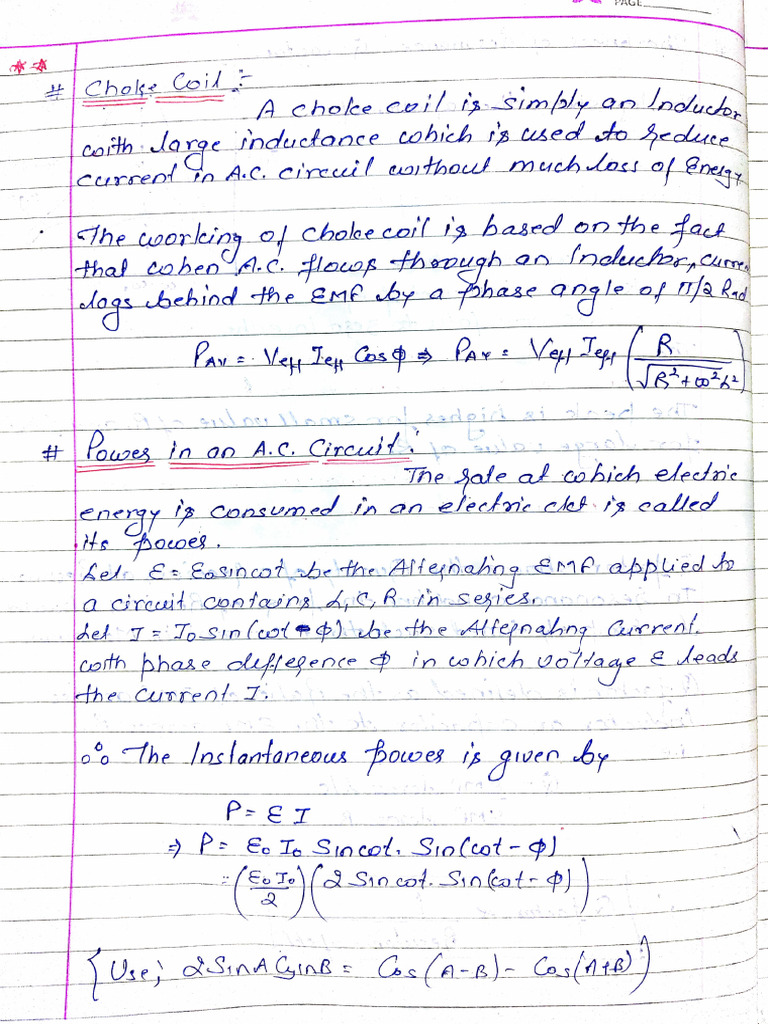 PAGE
# Choke Coil :-
A choke coil is simply an Inductor
with large inductance which is used to reduce
current in A.C. circuit without much loss of Energy
The working of choke coil is based on the fact
that when A.C. flows through an Inductor, curren
lags behind the EMF by a phase angle of π/2 Rad
P_AV = V_eff I_eff Cos φ ⇒ P_AV = V_eff I_eff (R / √(R² + ω²L²))
# Power in an A.C. Circuit :
The rate at which electric
energy is consumed in an electric ckt is called
its power.
Let ε = ε₀ sin ωt be the Alternating EMF applied to
a circuit contains L, C, R in series.
Let I = I₀ sin (ωt - φ) be the Alternating Current.
with phase difference φ in which voltage ε leads
the current I.
∴ The Instantaneous power is given by
P = ε I
⇒ P = ε₀ I₀ Sin ωt. Sin (ωt - φ)
= (ε₀ I₀ / 2) (2 Sin ωt. Sin (ωt - φ))
{Use; 2 Sin A Sin B = Cos (A - B) - Cos (A + B)}